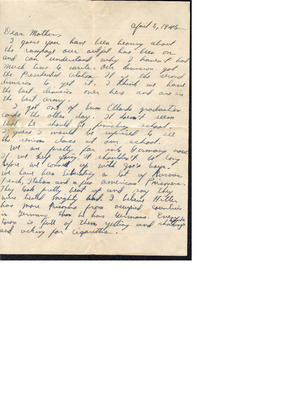 April 8, 1945
Dear Mother,
I guess you have been hearing about
the rampage our outfit has been on
and can understand why I haven't had
much time to write. Our division got
the Presidential Citation. It is the second
division to get it. I think we have
the best division over here and are in
the best army.
I got one of Clarks graduation
cards the other day. It doesn't seem
that he should be finishing school.
I guess I would be surprised to see
the senior class at our school.
We are pretty far into Germany now
if we keep going it shouldn't be long
before we with Joe's boys.
we have been liberating a lot of Russian,
French, Italian and a few American Prisoners.
They look pretty beat up and say they
were treated mighty bad. I believe Hitler
has more Prisoners from occupied countries
in Germany than he has Germans. Every
town is full of them yelling and shouting
and asking for cigarettes.